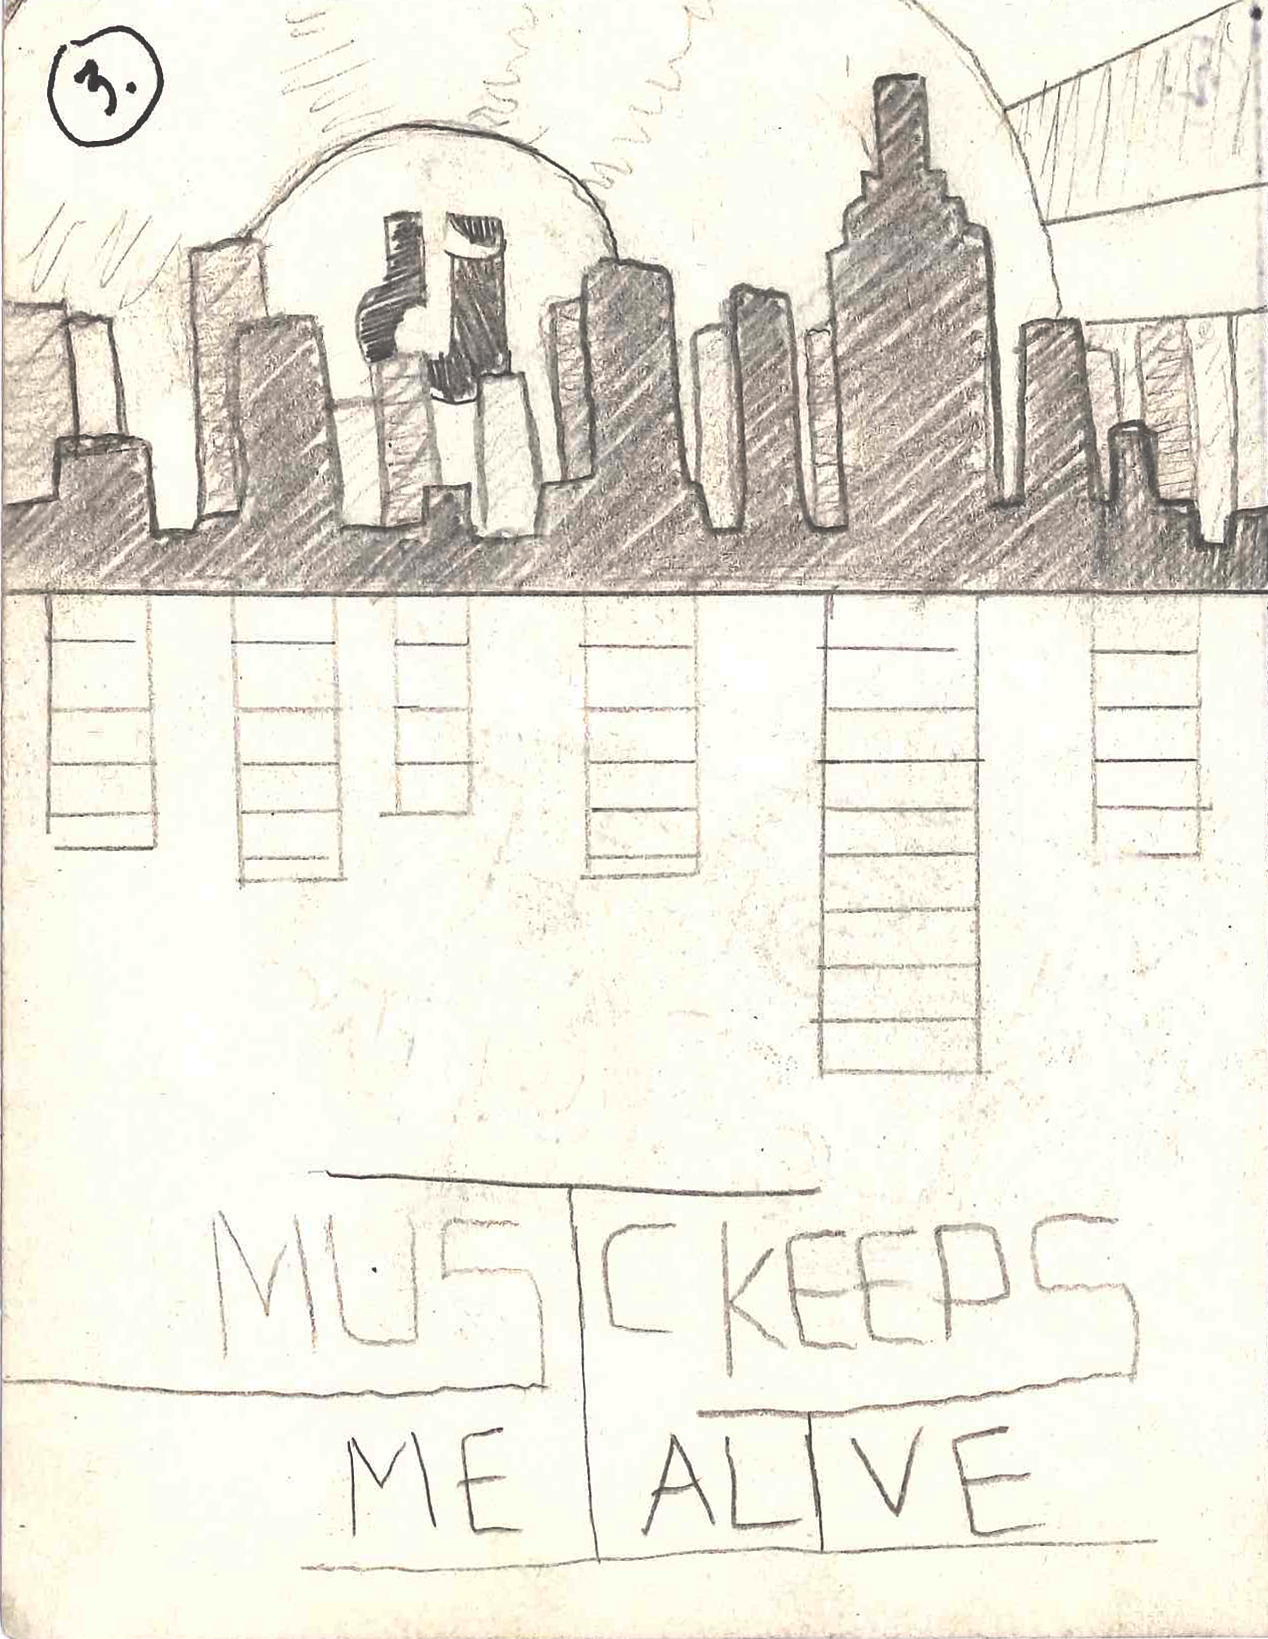 3.
MUSIC KEEPS
ME ALIVE